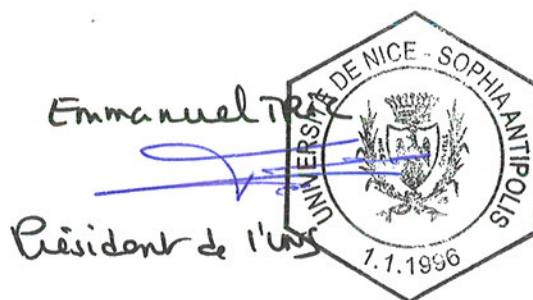 Emmanuel TRIC
Président de l'UNS
UNIVERSITÉ DE NICE - SOPHIA ANTIPOLIS
1.1.1996